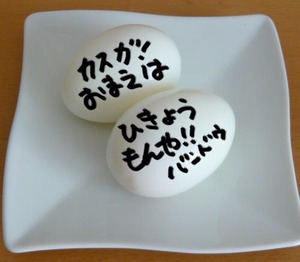 カスが!
おまえは
ひきょう
もんや!!
バンドゥ